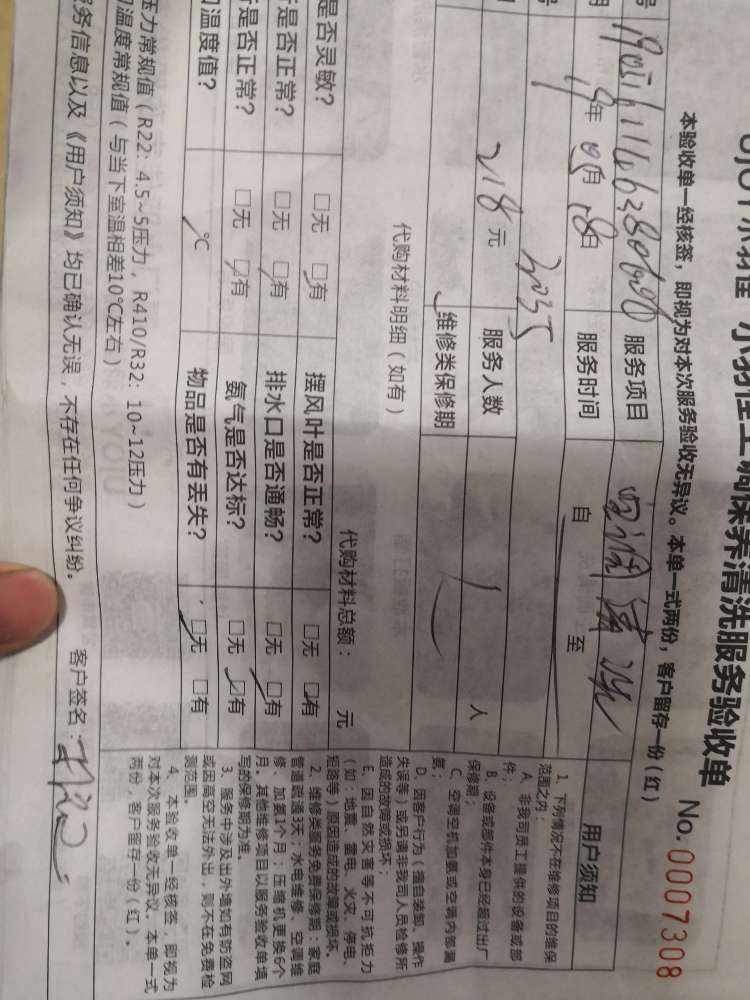 小羽佳空调保养清洗服务验收单
No. 0007308
本验收单一经核签，即视为对本次服务验收无异议。本单一式两份，客户留存一份（红）
服务项目 空调清洗
19年05月18日 服务时间 自 至
3035
218元 服务人数 1 人
维修类保修期
代购材料明细（如有）
代购材料总额： 元
是否灵敏？ □无 □有 摆风叶是否正常？ □无 □有
是否正常？ □无 □有 排水口是否通畅？ □无 □有
是否正常？ □无 □有 氨气是否达标？ □无 □有
温度值？ ℃ 物品是否有丢失？ □无 □有
压力常规值（R22：4.5~5压力，R410/R32：10~12压力）
温度常规值（与当下室温相差10℃左右）
服务信息以及《用户须知》均已确认无误，不存在任何争议纠纷。 客户签名：
用户须知
1、下列情况不在维修项目的维保
范围之内：
A、非我司员工提供的设备或部
件；
B、设备或部件本身已经超过出厂
保修期；
C、空调空机加氨或空调内部漏
氨；
D、因客户行为（擅自装卸、操作
失误等）或另请非我司人员检修所
造成的故障或损坏；
E、因自然灾害等不可抗拒力
（如：地震、雷电、火灾、停电、
短路等）原因造成的故障或损坏。
2、维修类服务免费保修期：家庭
管道疏通3天；水电维修、空调维
修、加氨1个月；压缩机更换6个
月。其他维修项目以服务验收单填
写的保修期为准。
3、服务中涉及出外墙如有防盗网
或因高空无法外出，则不在免费检
测范围。
4、本验收单一经核签，即视为
对本次服务验收无异议。本单一式
两份，客户留存一份（红）。